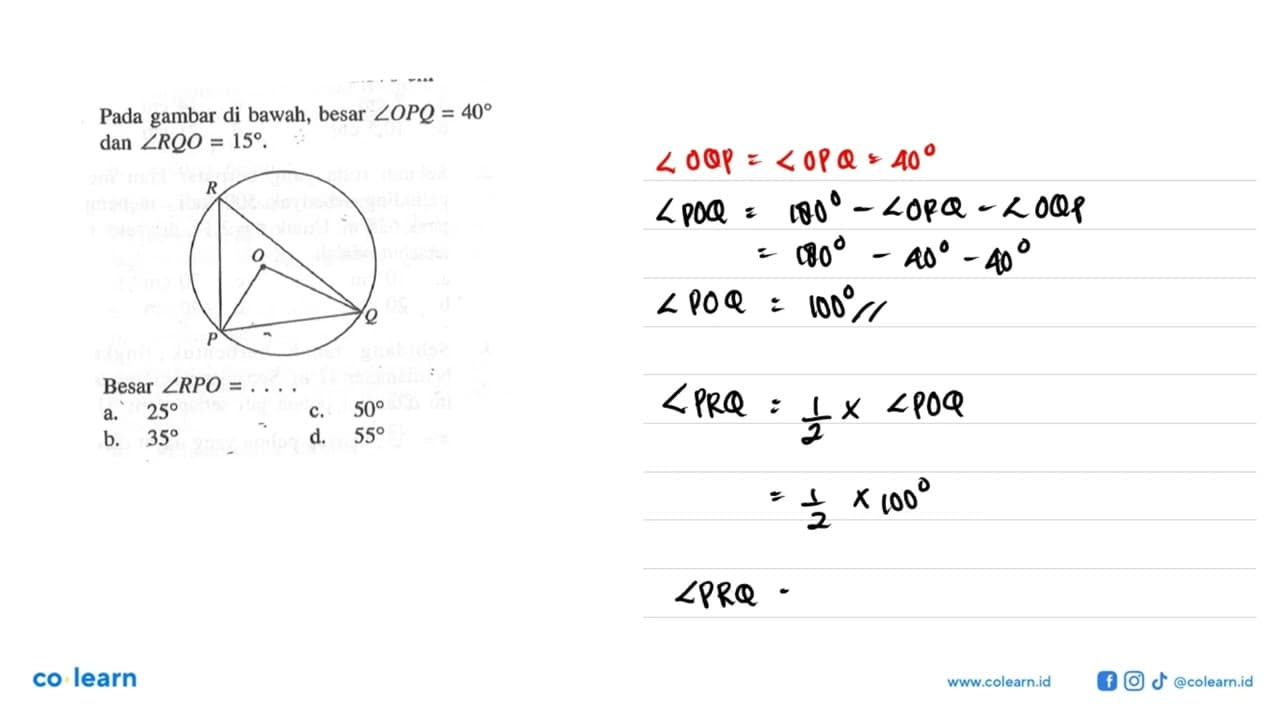 Pada gambar di bawah, besar ∠OPQ = 40°
dan ∠RQO = 15°.
R
O
Q
P
Besar ∠RPO = . . . .
a. 25° c. 50°
b. 35° d. 55°
∠OQP = ∠OPQ = 40°
∠POQ = 180° - ∠OPQ - ∠OQP
= 180° - 40° - 40°
∠POQ = 100° //
∠PRQ = 1/2 x ∠POQ
= 1/2 x 100°
∠PRQ -
co learn
www.colearn.id
@colearn.id